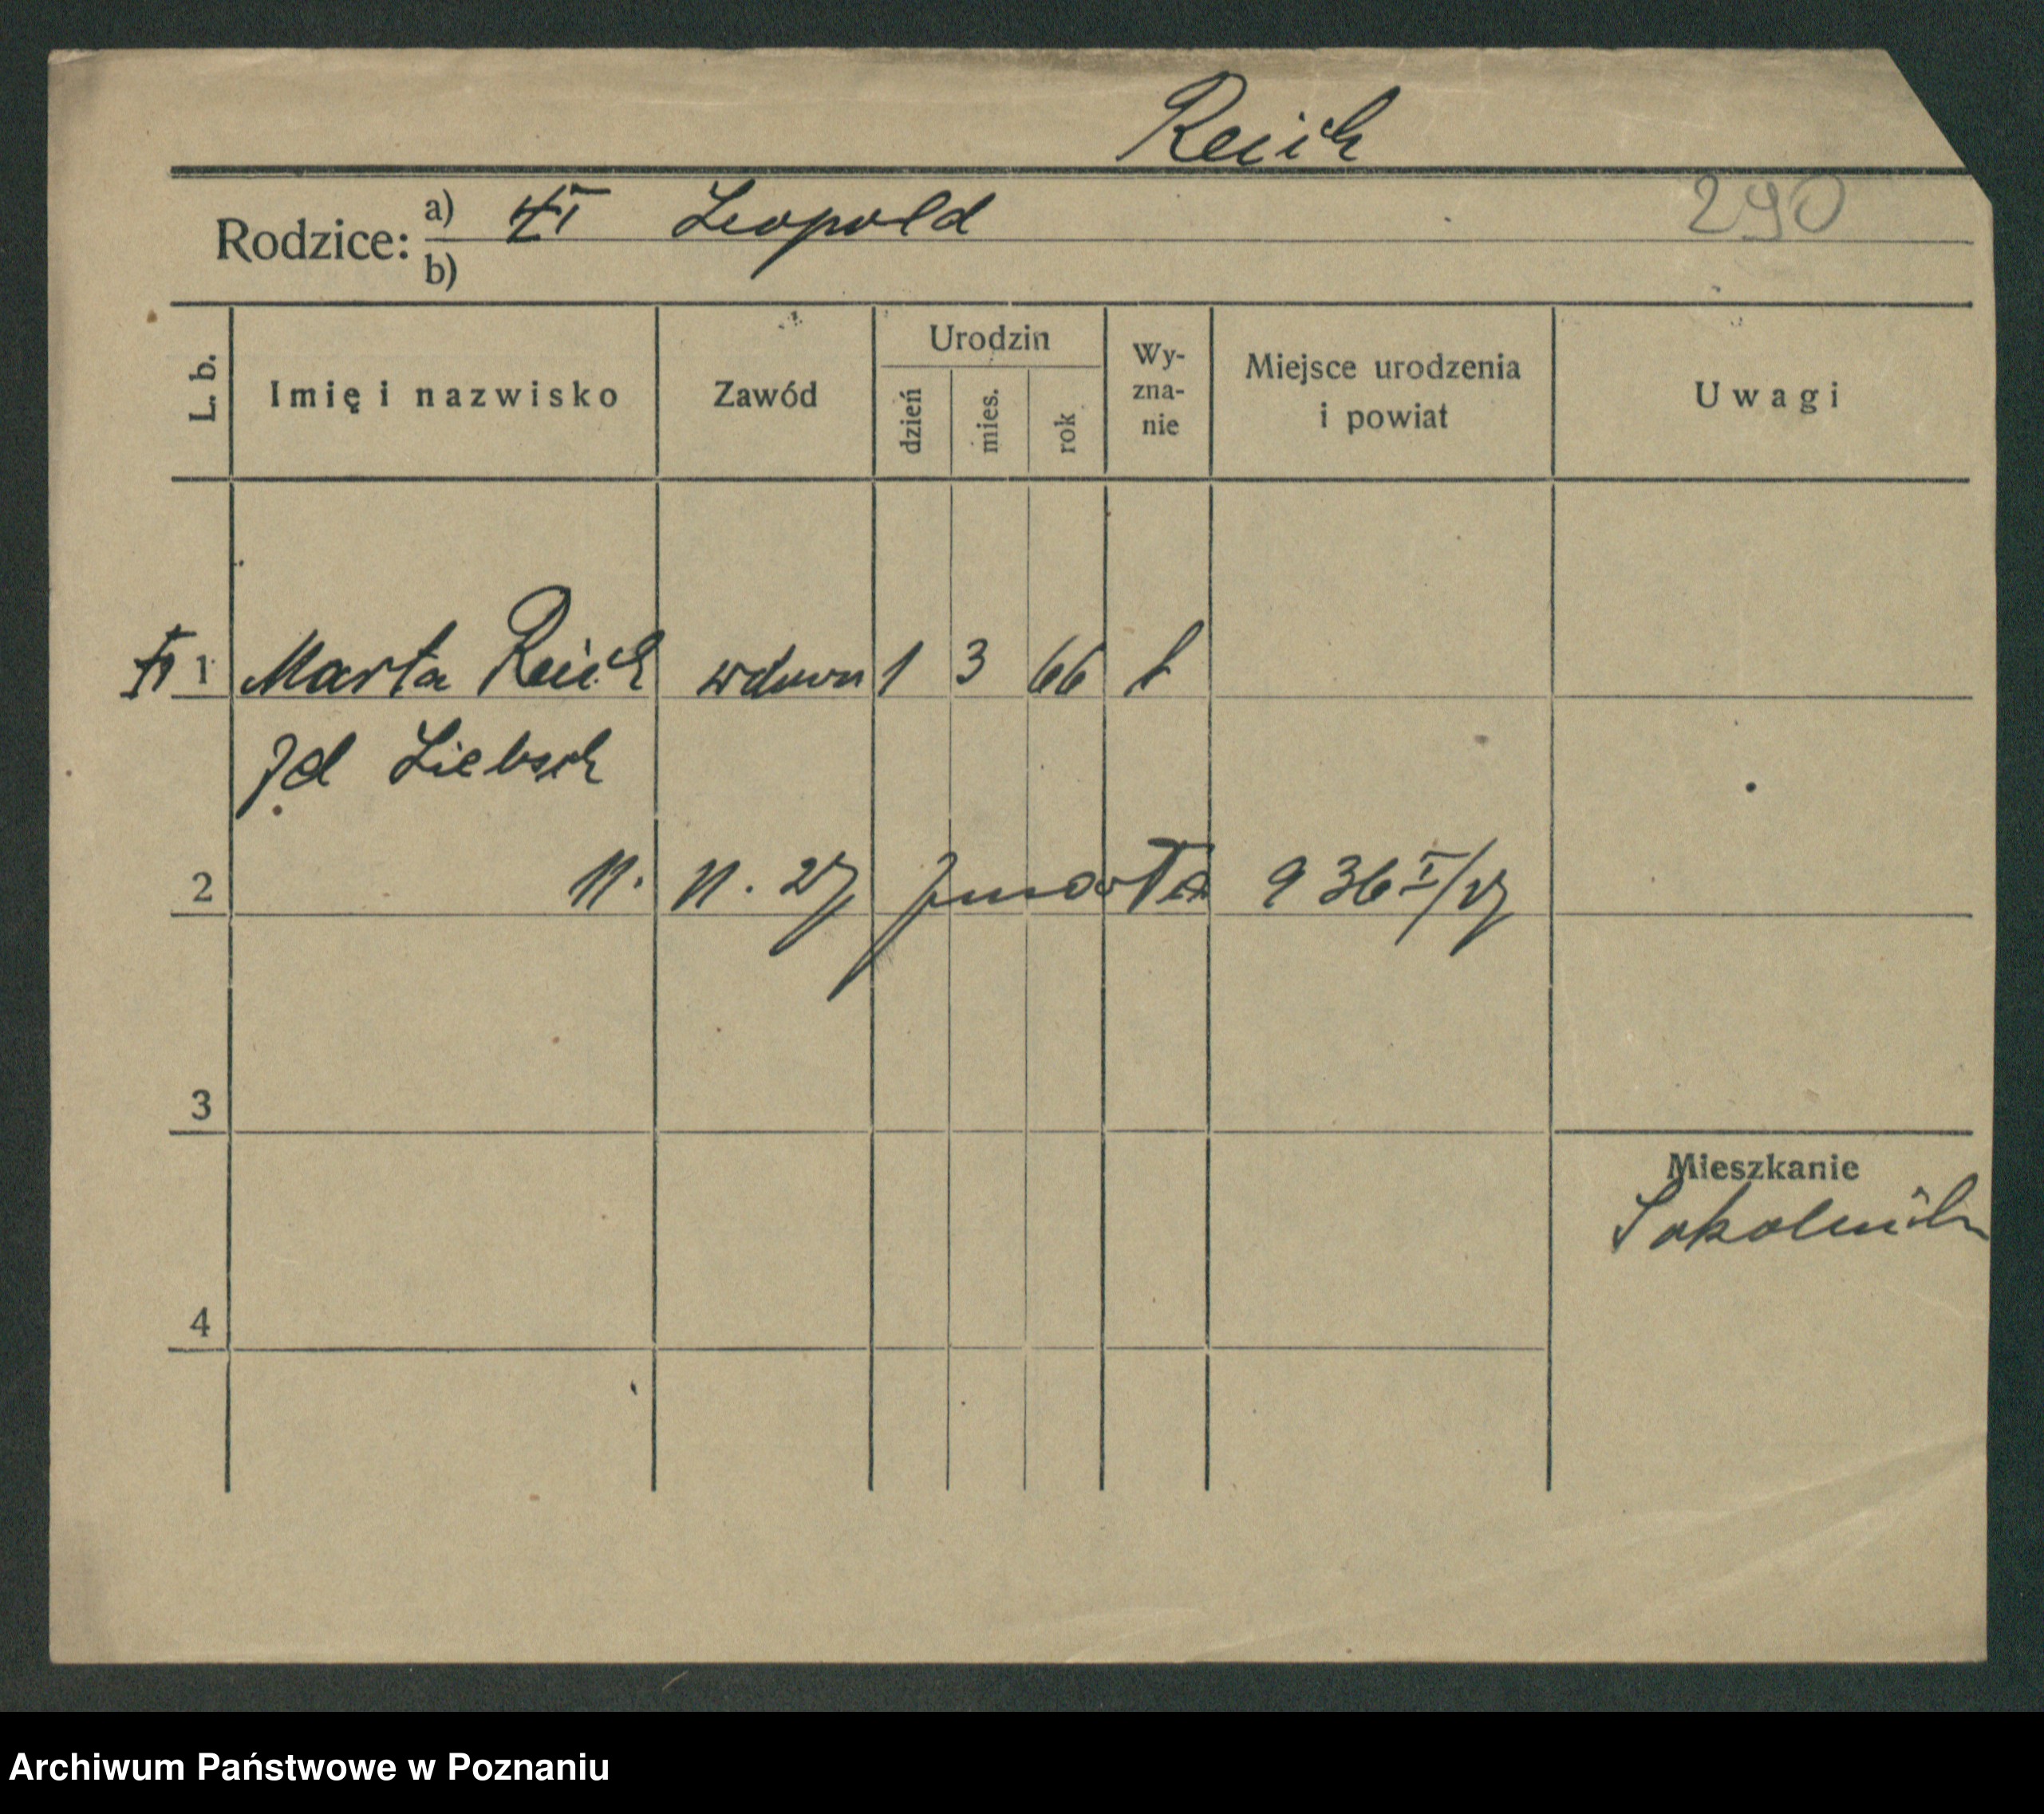 Reich
290
Rodzice: a) Leopold
b)
L. b. Imię i nazwisko Zawód Urodzin dzień mies. rok Wy-zna-nie Miejsce urodzenia i powiat Uwagi
1 Marta Reich wdowa 1 3 66
Liebsch
2 11. 11. 27 zmarła 936 I/27
3
Mieszkanie
4
Archiwum Państwowe w Poznaniu